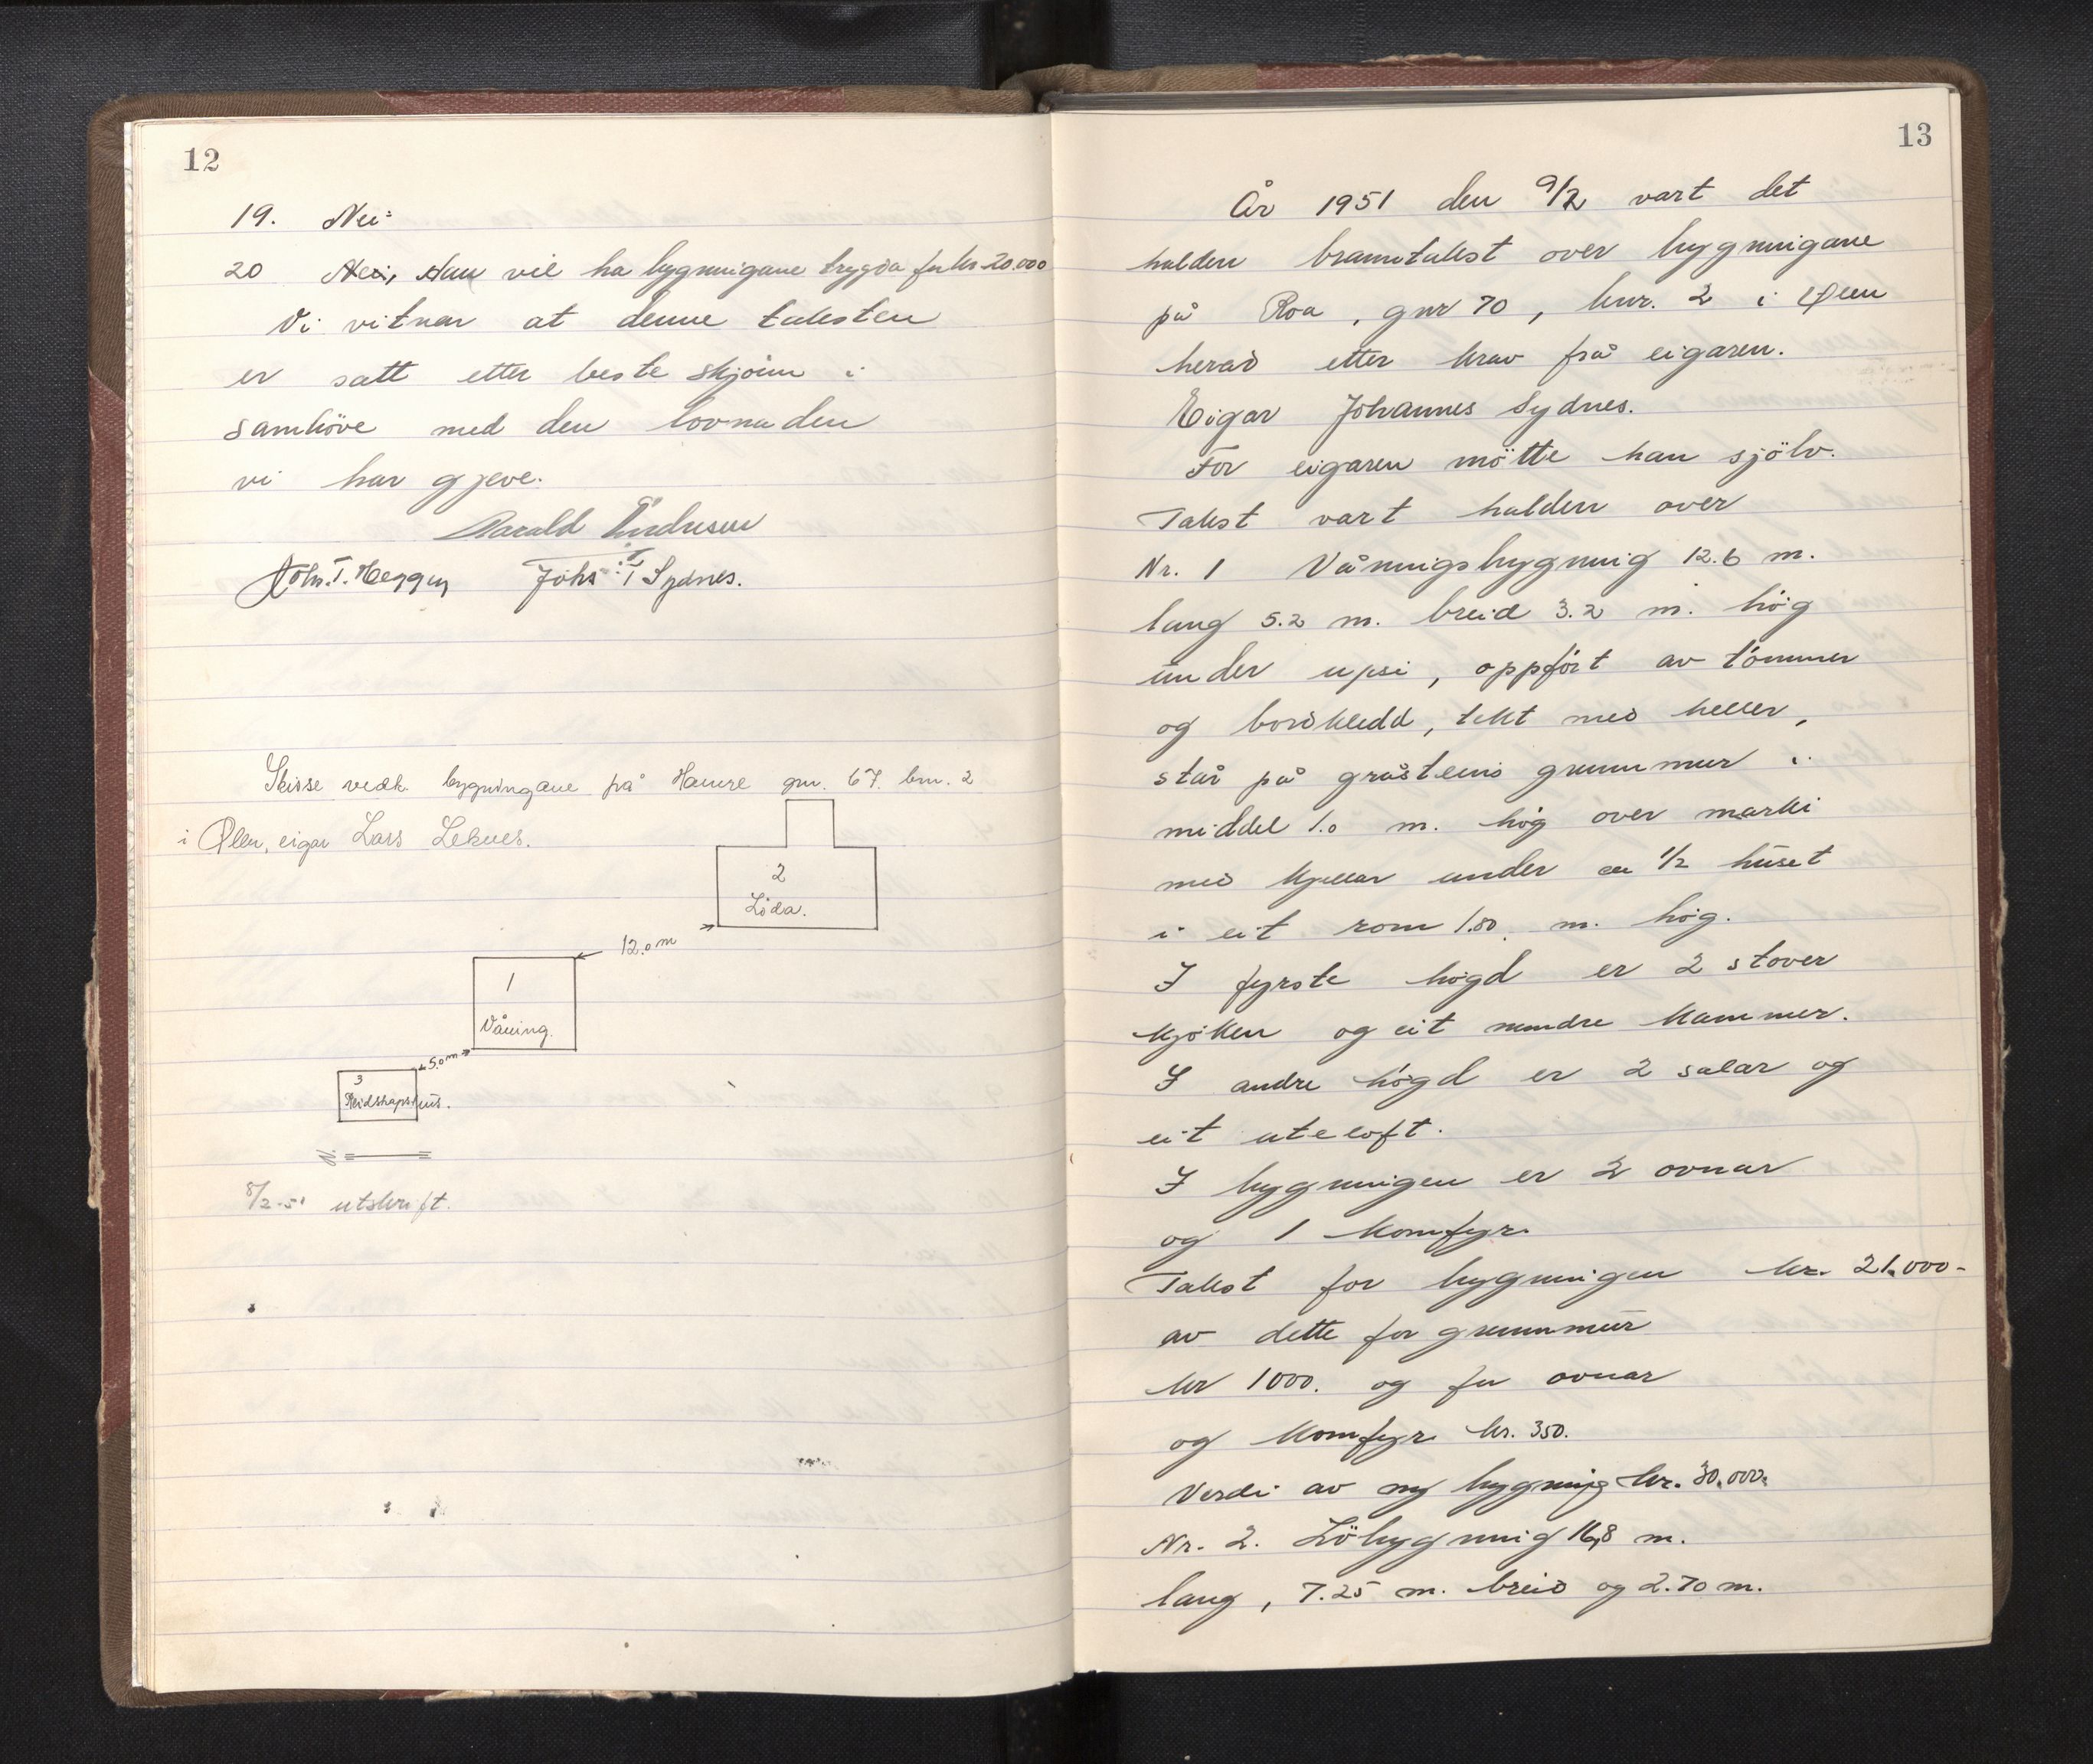 12
19. Nei
20 Nei, Han vil ha bygningane trygda for kr 20.000
Vi vitnar at denne taksten
er satt etter beste skjönn i
samhöve med den lovnaden
vi har gjeve.
Harald Endresen
Joh. T. Heggen Johs T Sydnes.
Skisse vedk. bygningane på Hamre gnr. 67. bnr. 2
i Ølen, eigar Lars Leknes.
2
Löda.
12.0 m
1
Våning.
5.0 m
3
Reidskapshus.
N.
8/2-51 utskrift.
13
År 1951 den 9/2 vart det
halden branntakst over bygningane
på Roa, gnr 70, bnr. 2 i Ølen
herad etter krav frå eigaren.
Eigar Johannes Sydnes.
For eigaren mötte han sjölv.
Takst vart halden over
Nr. 1 Våningsbygning 12.6 m.
lang 5.2 m. breid 3.2 m. hög
under upsi, oppfört av tömmer
og bordkledd, tekt med heller,
står på gråsteins grunnmur i
middel 1.0 m. hög over marki
med kjellar under 1/2 huset
i eit rom 1.80 m. hög.
I fyrste högd er 2 stover
kjöken og eit mindre kammer.
I andre högd er 2 salar og
eit uteloft.
I bygningen er 2 ovnar
og 1 komfyr.
Takst for bygningen kr. 21.000-
av dette for grunnmur
kr 1000. og for ovnar
og komfyr kr. 350.
Verdi av ny bygning kr. 30.000.
Nr. 2. Löbygning 16,8 m.
lang, 7.25 m. breid og 2.70 m.